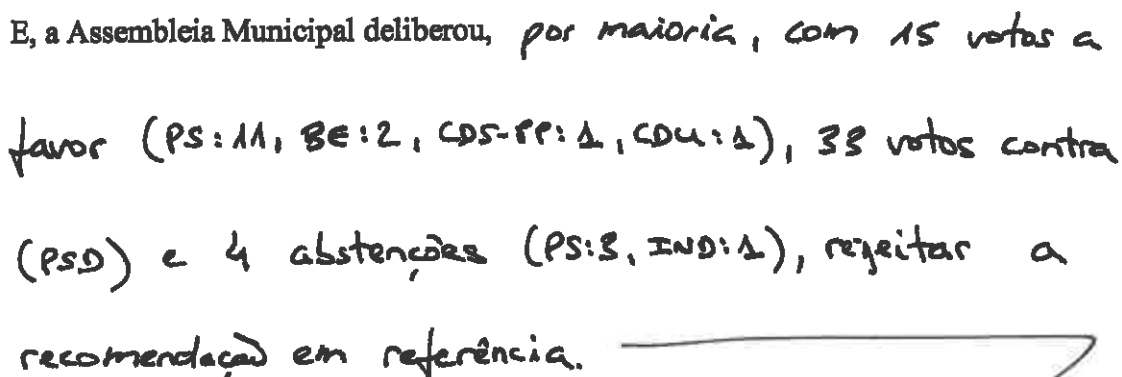 E, a Assembleia Municipal deliberou, por maioria, com 15 votos a
favor (PS:11, BE:2, CDS-PP:1, CDU:1), 33 votos contra
(PSD) e 4 abstenções (PS:3, IND:1), rejeitar a
recomendação em referência.